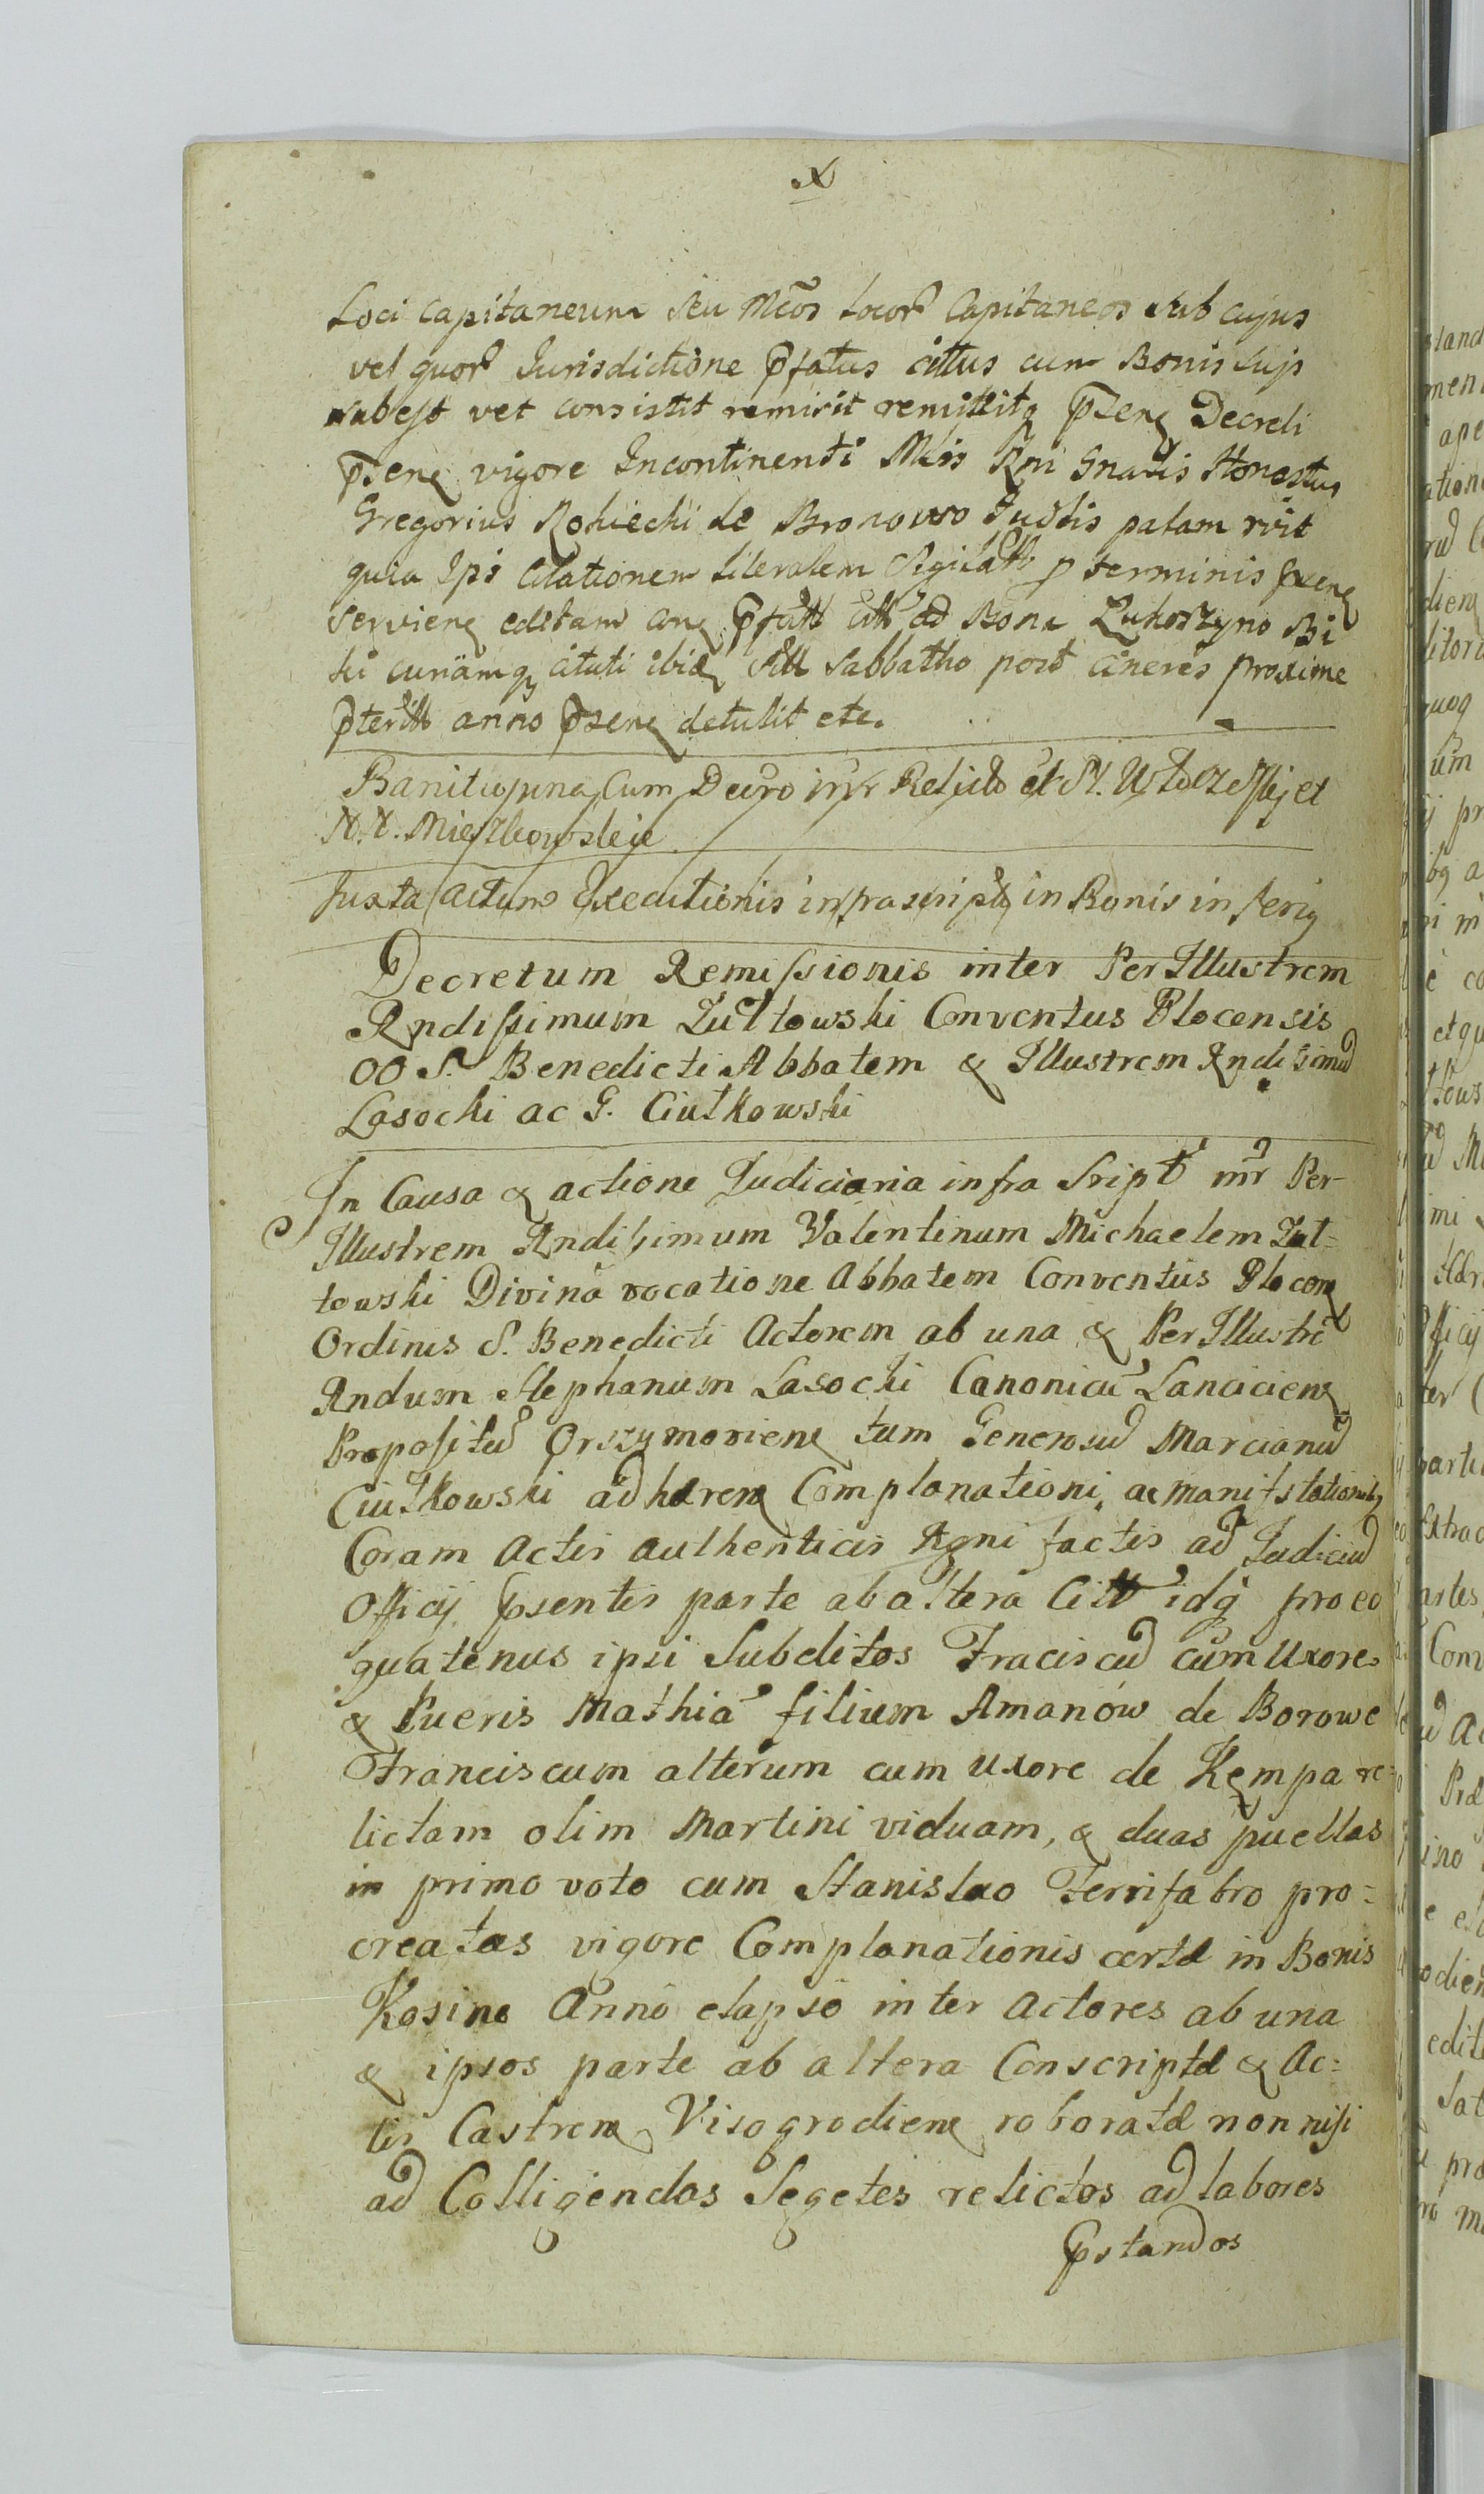 X
Loci Capitaneum Seu Mcos Locor Capitaneos Sub cujus
vel quor Jurisdictione pfatus cittus cum Bonis suis
subest vel consistit remisit remittitq psenq Decreti
psenq vigore Incontinenti Mris Rni Gnalis Honestus
Gregorius Rokiecki de Bronowo Judtis palam rvit
quia Ipse Citationem literalem Sigillatt p terminis psenq
servienq editam conq pfatt citt ad Bona Lukoszyno Bi
ki curiamq cituti ibiq Sitt Sabbatho post cineres proxime
pteritt anno psenq detulit etc.
Banitiopna Cum Decro intr Relicto et St. Wtoczesskij et
N.N. Mieszkowskie
Juxta actum Executionis infrascriptq in Bonis inferiq
Decretum Remissionis inter PerIllustrem
Rndissimum Zułtowski Conventus Plocensis
OO S. Benedicti Abbatem & Illustrem Rndissimu
Lasocki ac G. Ciutkowski
In Causa & actione Judiciaria infra Sript intr Per-
Illustrem Rndissimum Valentinum Michaelem Zuł=
towski Divina vocatione Abbatem Conventus Plocenq
Ordinis S. Benedicti Actorem ab una & PerIllustre
Rndum Stephanum Lasocki Canonicu Lanciciens
Propositu Orszymoviens tum Generosu Marcianu
Ciutkowski adhærenq Complanationi, ac manifstationibq
Coram Actis authenticis Rgni factis ad Judiciu
Officij psentis parte ab altera Citt idq pro eo
quatenus ipsi Subditos Fraciscu cum Uxore
& Pueris Mathia filium Amanów de Borowe
Franciscum alterum cum uxore de Kempa re=
lictam olim Martini viduam, & duas puellas
in primo voto cum Stanislao Ferrifabro pro=
creatas vigore Complanationis certæ in Bonis
Kosino Anno elapso inter Actores ab una
& ipsos parte ab altera Conscriptæ & Ac=
tis Castrens Visogrodiens roboratæ non nisi
ad Colligendas Segetes relictos ad labores
pstandos